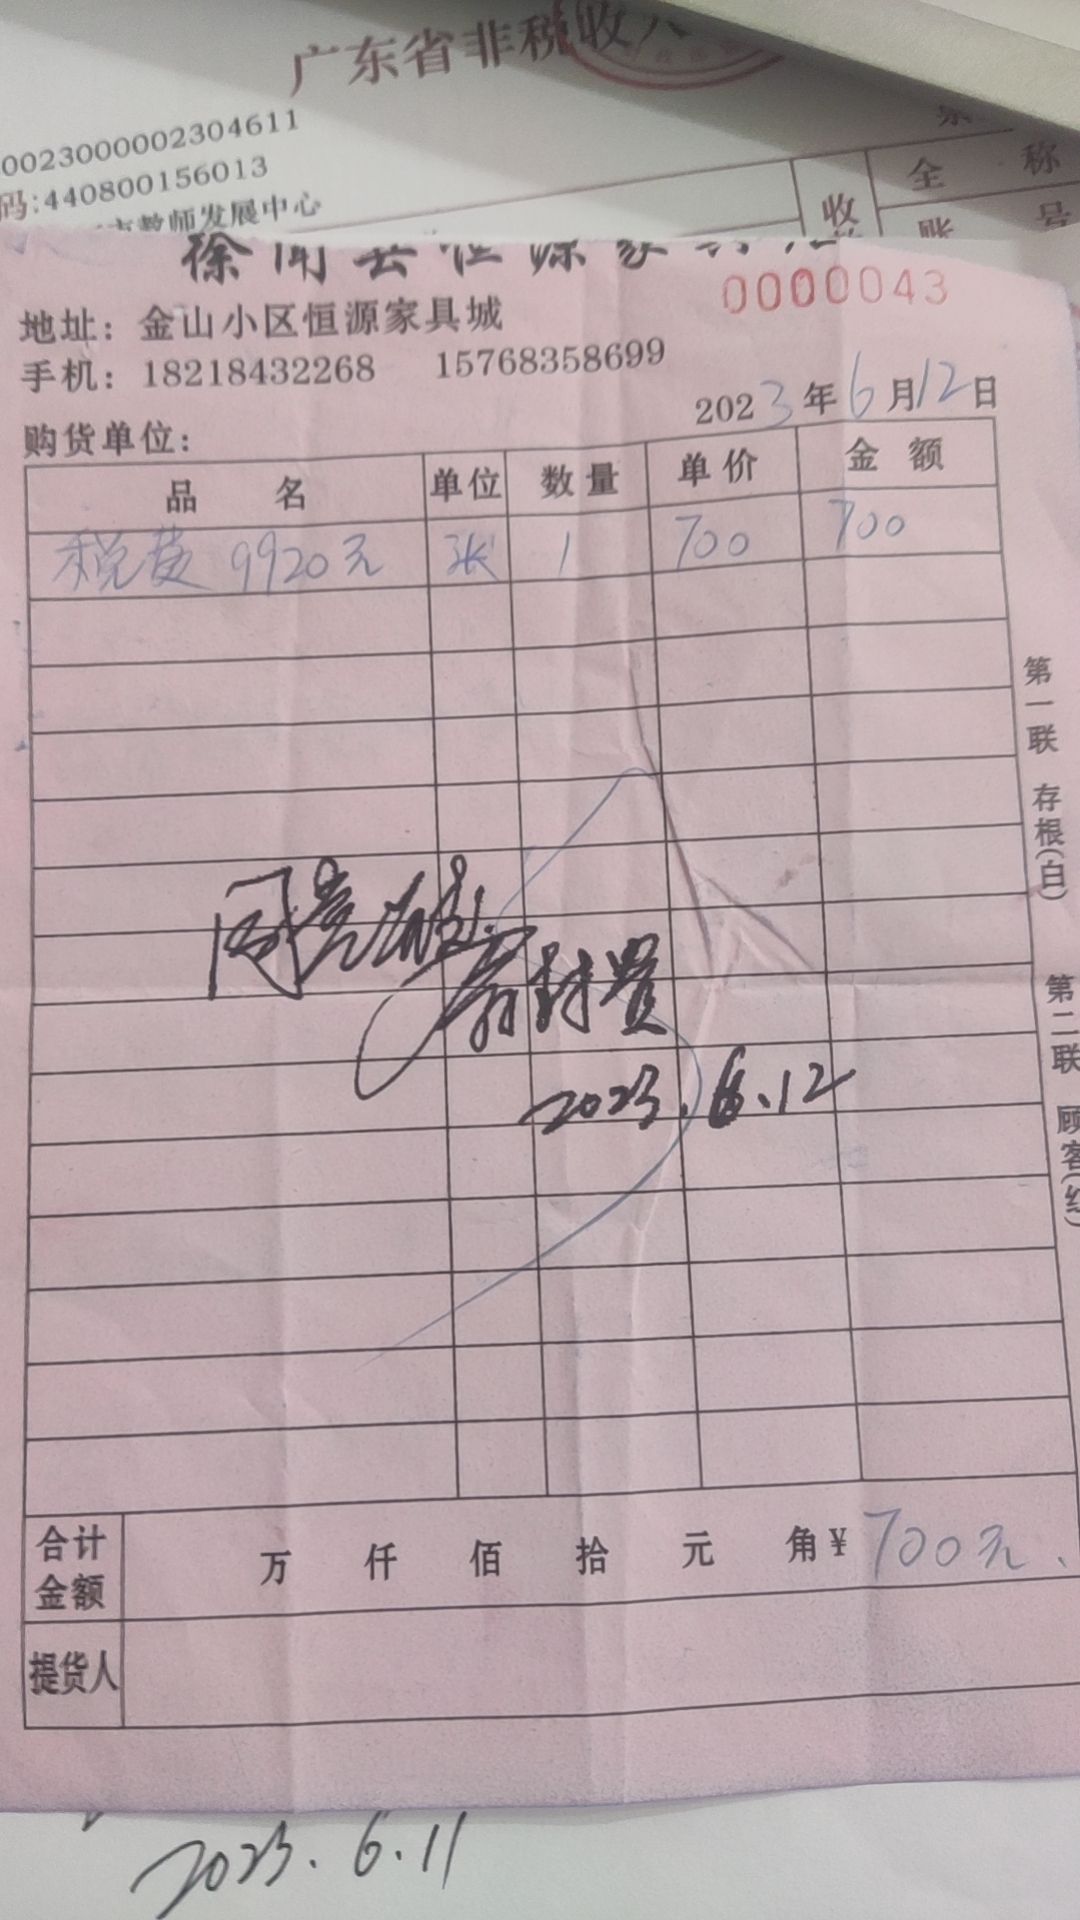 广东省非税收入
0023000002304611
码:440800156013
市教师发展中心
收
全 称
账 号
徐闻县恒源家
0000043
地址：金山小区恒源家具城
手机：18218432268 15768358699
2023年6月12日
购货单位：
品 名 单位 数量 单价 金额
税费 9920元 张 1 700 700
第一联 存根(白)
第二联 顾客(红)
2023.6.12
合计金额 万 仟 佰 拾 元 角 ¥700元
提货人
2023.6.11